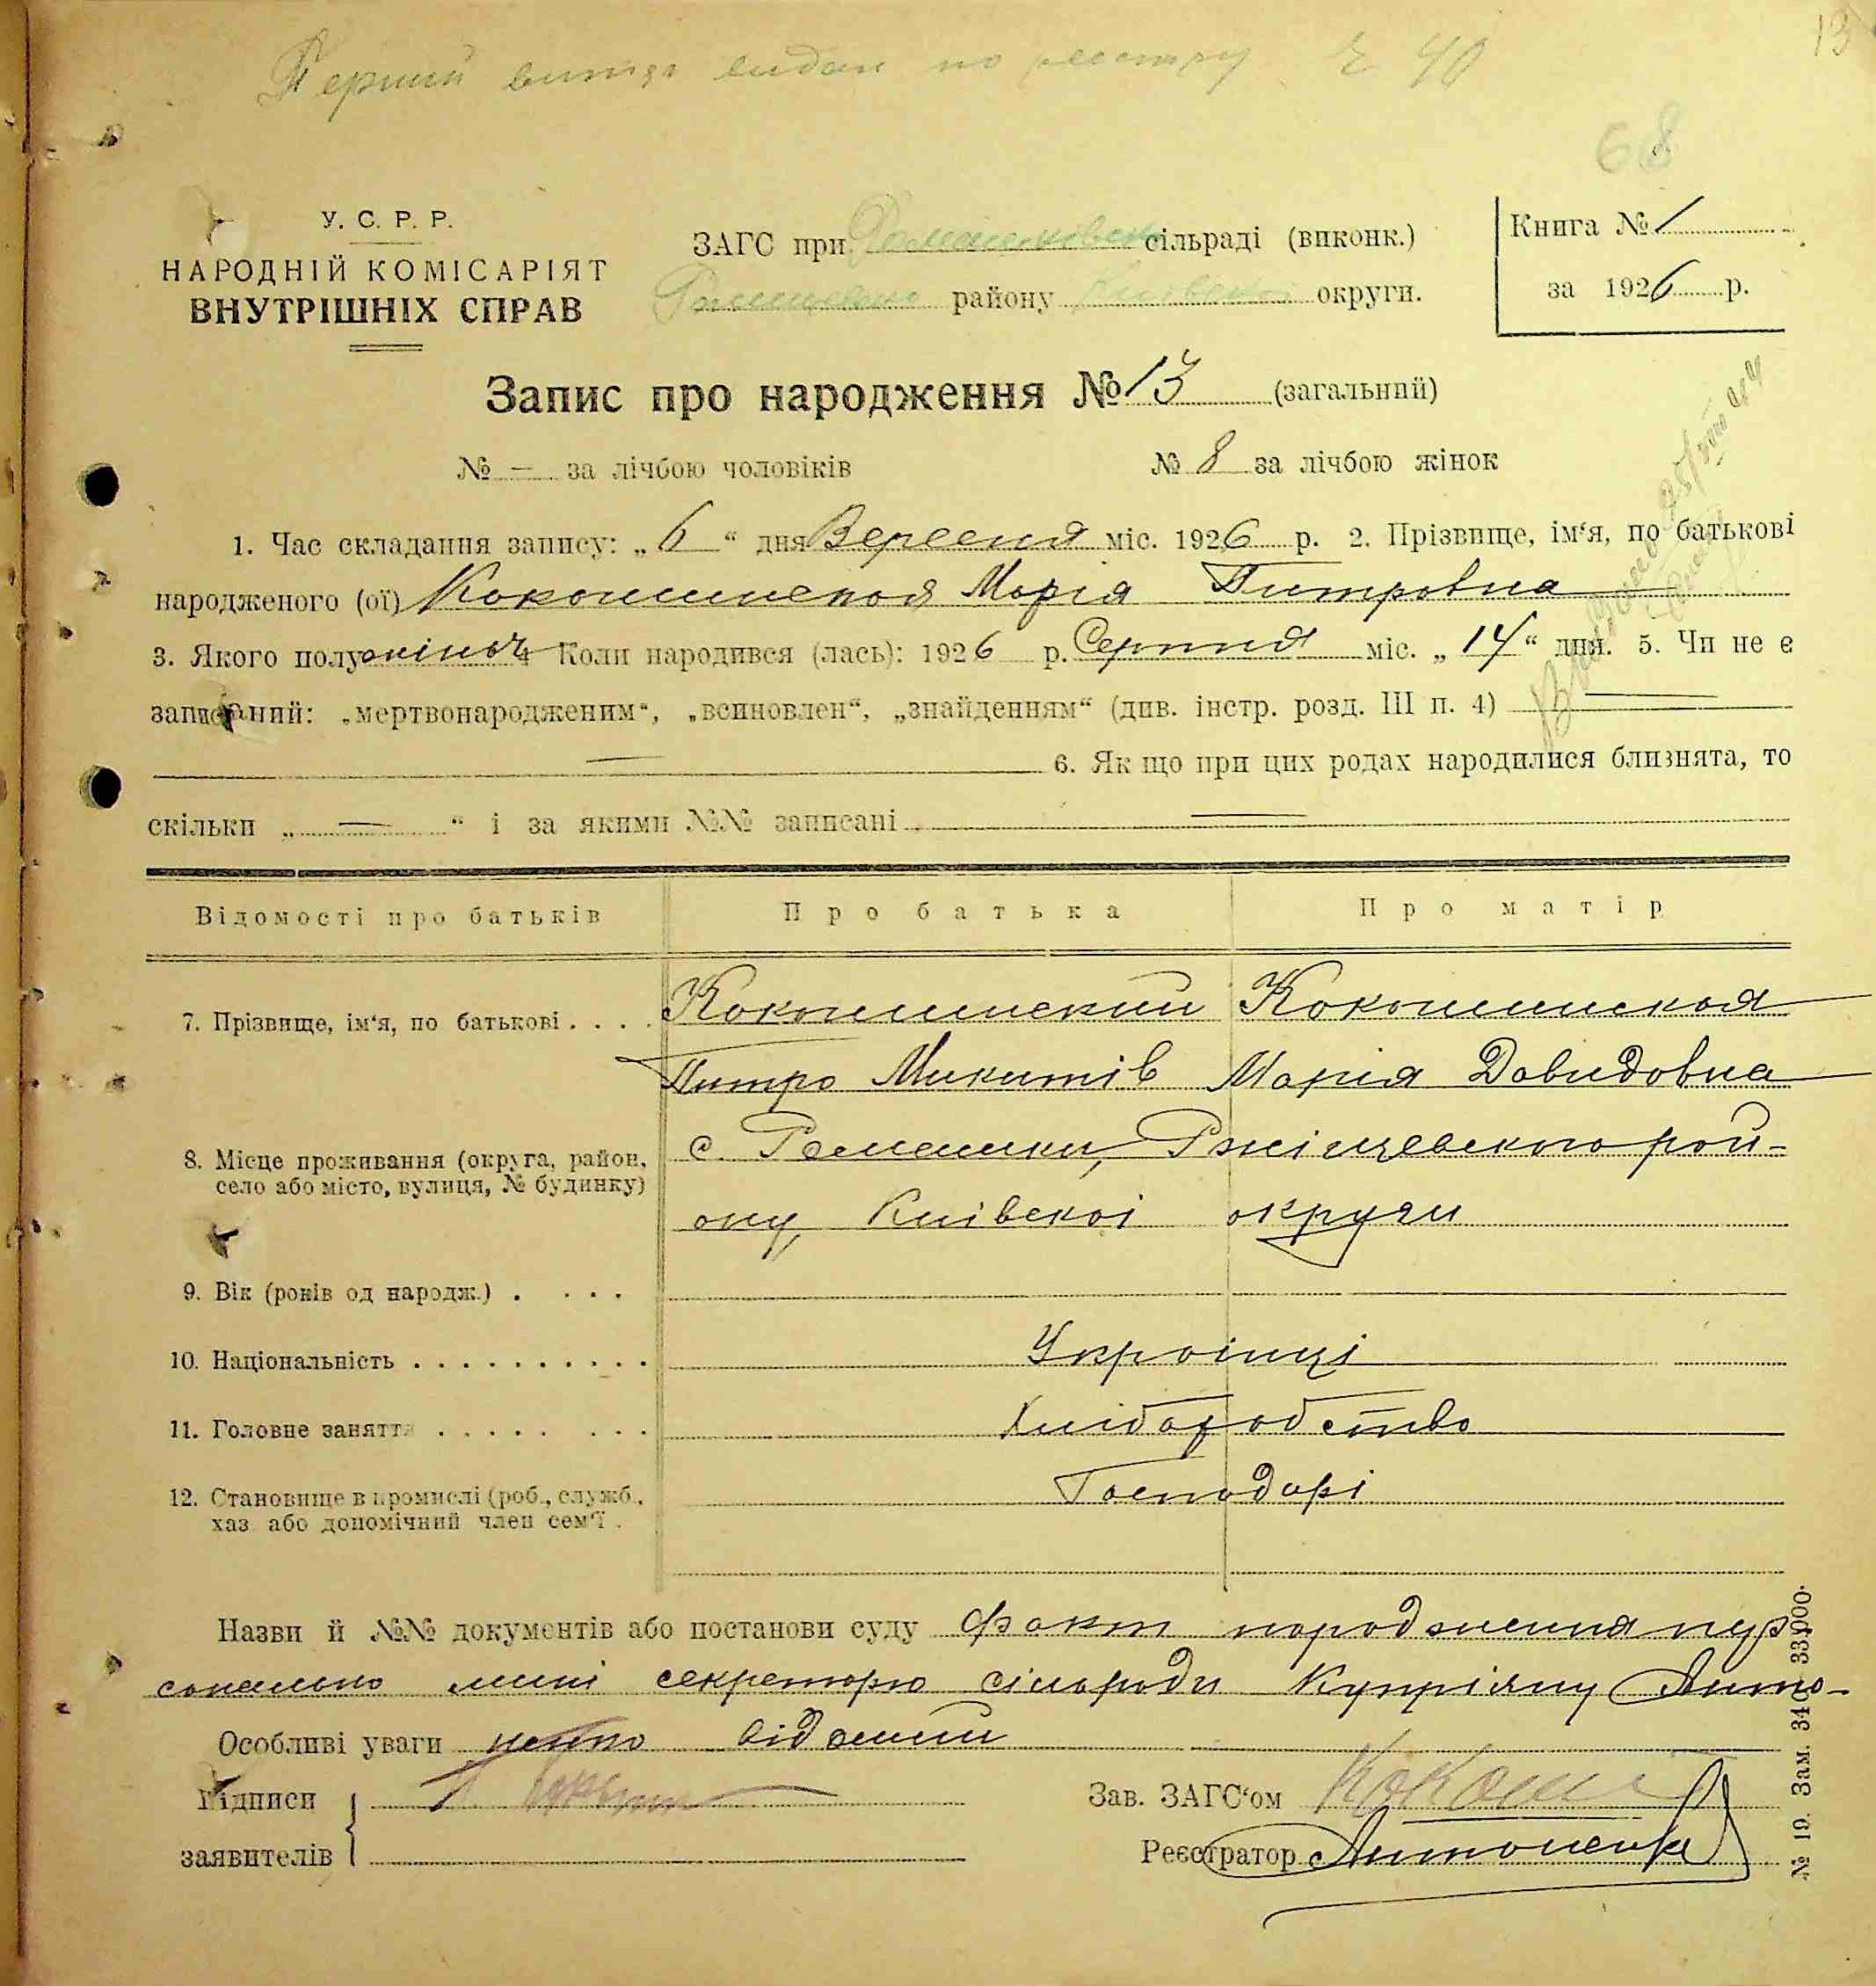 13
Перший витяг видан по реєстру № 40
68
У. С. Р. Р.
НАРОДНІЙ КОМІСАРІЯТ
ВНУТРІШНІХ СПРАВ
ЗАГС при сільраді (виконк.)
району Київскої округи.
Книга № 1
за 1926 р.
Запис про народження № 13 (загальний)
№ — за лічбою чоловіків № 8 за лічбою жінок
1. Час складання запису: „6“ дня Вересня міс. 1926 р. 2. Прізвище, ім‘я, по батькові
народженого (ої) Кокошинская Марія Питровна
3. Якого полу жіноч 4 Коли народився (лась): 1926 р. Серпня міс. „14“ дня. 5. Чи не є
записаний: „мертвонародженим“, „всиновлен“, „знайденням“ (див. інстр. розд. III п. 4) —
— 6. Як що при цих родах народилися близнята, то
скільки „ — “ і за якими №№ записані —
Відомості про батьків Про батька Про матір
7. Прізвище, ім‘я, по батькові . . . . Кокошинский Кокошинская
Питро Микитів Марія Давидовна
8. Місце проживання (округа, район, село або місто, вулиця, № будинку) с. Ромашки, Ржіщевського рай-
ону, Київскої округи
9. Вік (років од народж.) . . . .
10. Національність . . . . . . . . . . Українці
11. Головне заняття . . . . . . . . Хліборобство
12. Становище в промислі (роб., служб., Господарі
хаз або допомічний член сем‘ї .
Назви й №№ документів або постанови суду факт народження пер
сонально мині секретарю сільради Купріяну Анто-
Особливі уваги ненко відомий
Підписи
заявителів
Зав. ЗАГС‘ом Кокош
Реєстратор Антоненко
№ 19. Зам. 340—33,000.